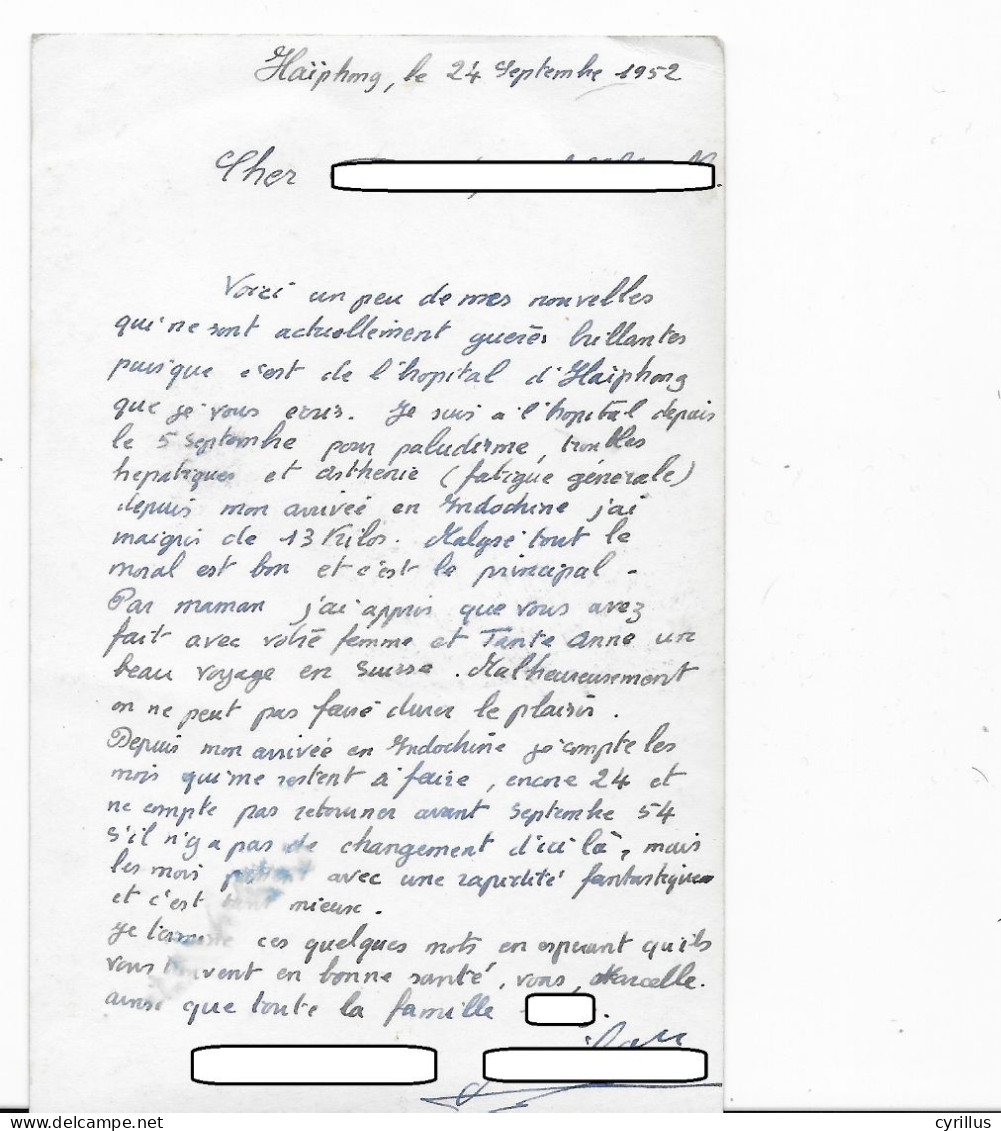 Haïphong, le 24 Septembre 1952
Cher
Voici un peu de mes nouvelles
qui ne sont actuellement guères brillantes
puisque c'est de l'hopital d'Haïphong
que je vous ecris. Je suis a l'hopital depuis
le 5 Septembre pour paludisme, troubles
hepatiques et asthenie (fatigue générale)
depuis mon arrivée en Indochine j'ai
maigri de 13 Kilos. Malgré tout le
moral est bon et c'est le principal -
Par maman j'ai appris que vous avez
fait avec votre femme et Tante Anne un
beau voyage en Suisse. Malheureusement
on ne peut pas faire durer le plaisir.
Depuis mon arrivée en Indochine je compte les
mois qui me restent à faire, encore 24 et
ne compte pas retourner avant Septembre 54
S'il n'y a pas de changement d'ici là, mais
les mois passent avec une rapidité fantastique
et c'est tant mieux.
Je termine ces quelques mots en esperant qu'ils
vous trouvent en bonne santé, vous, Marcelle.
ainsi que toute la famille
delcampe.net
cyrillus